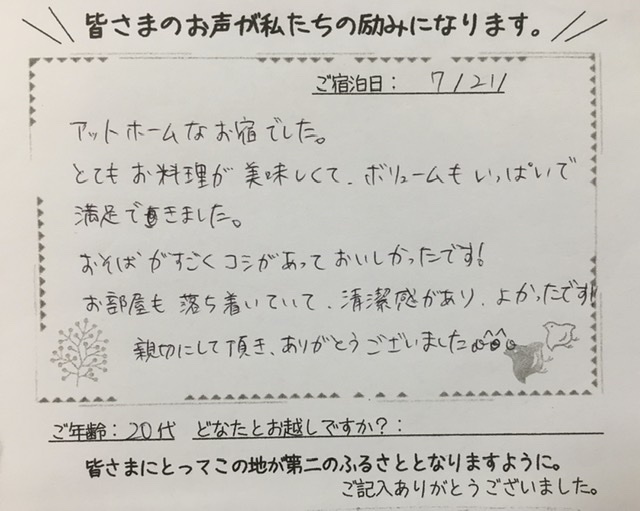 皆さまのお声が私たちの励みになります。
ご宿泊日: 7/21
アットホームなお宿でした。
とてもお料理が美味しくて、ボリュームもいっぱいで
満足できました。
おそばがすごくコシがあっておいしかったです!
お部屋も落ち着いていて、清潔感があり、よかったです!!
親切にして頂き、ありがとうございました
ご年齢: 20代 どなたとお越しですか?:
皆さまにとってこの地が第二のふるさととなりますように。
ご記入ありがとうございました。